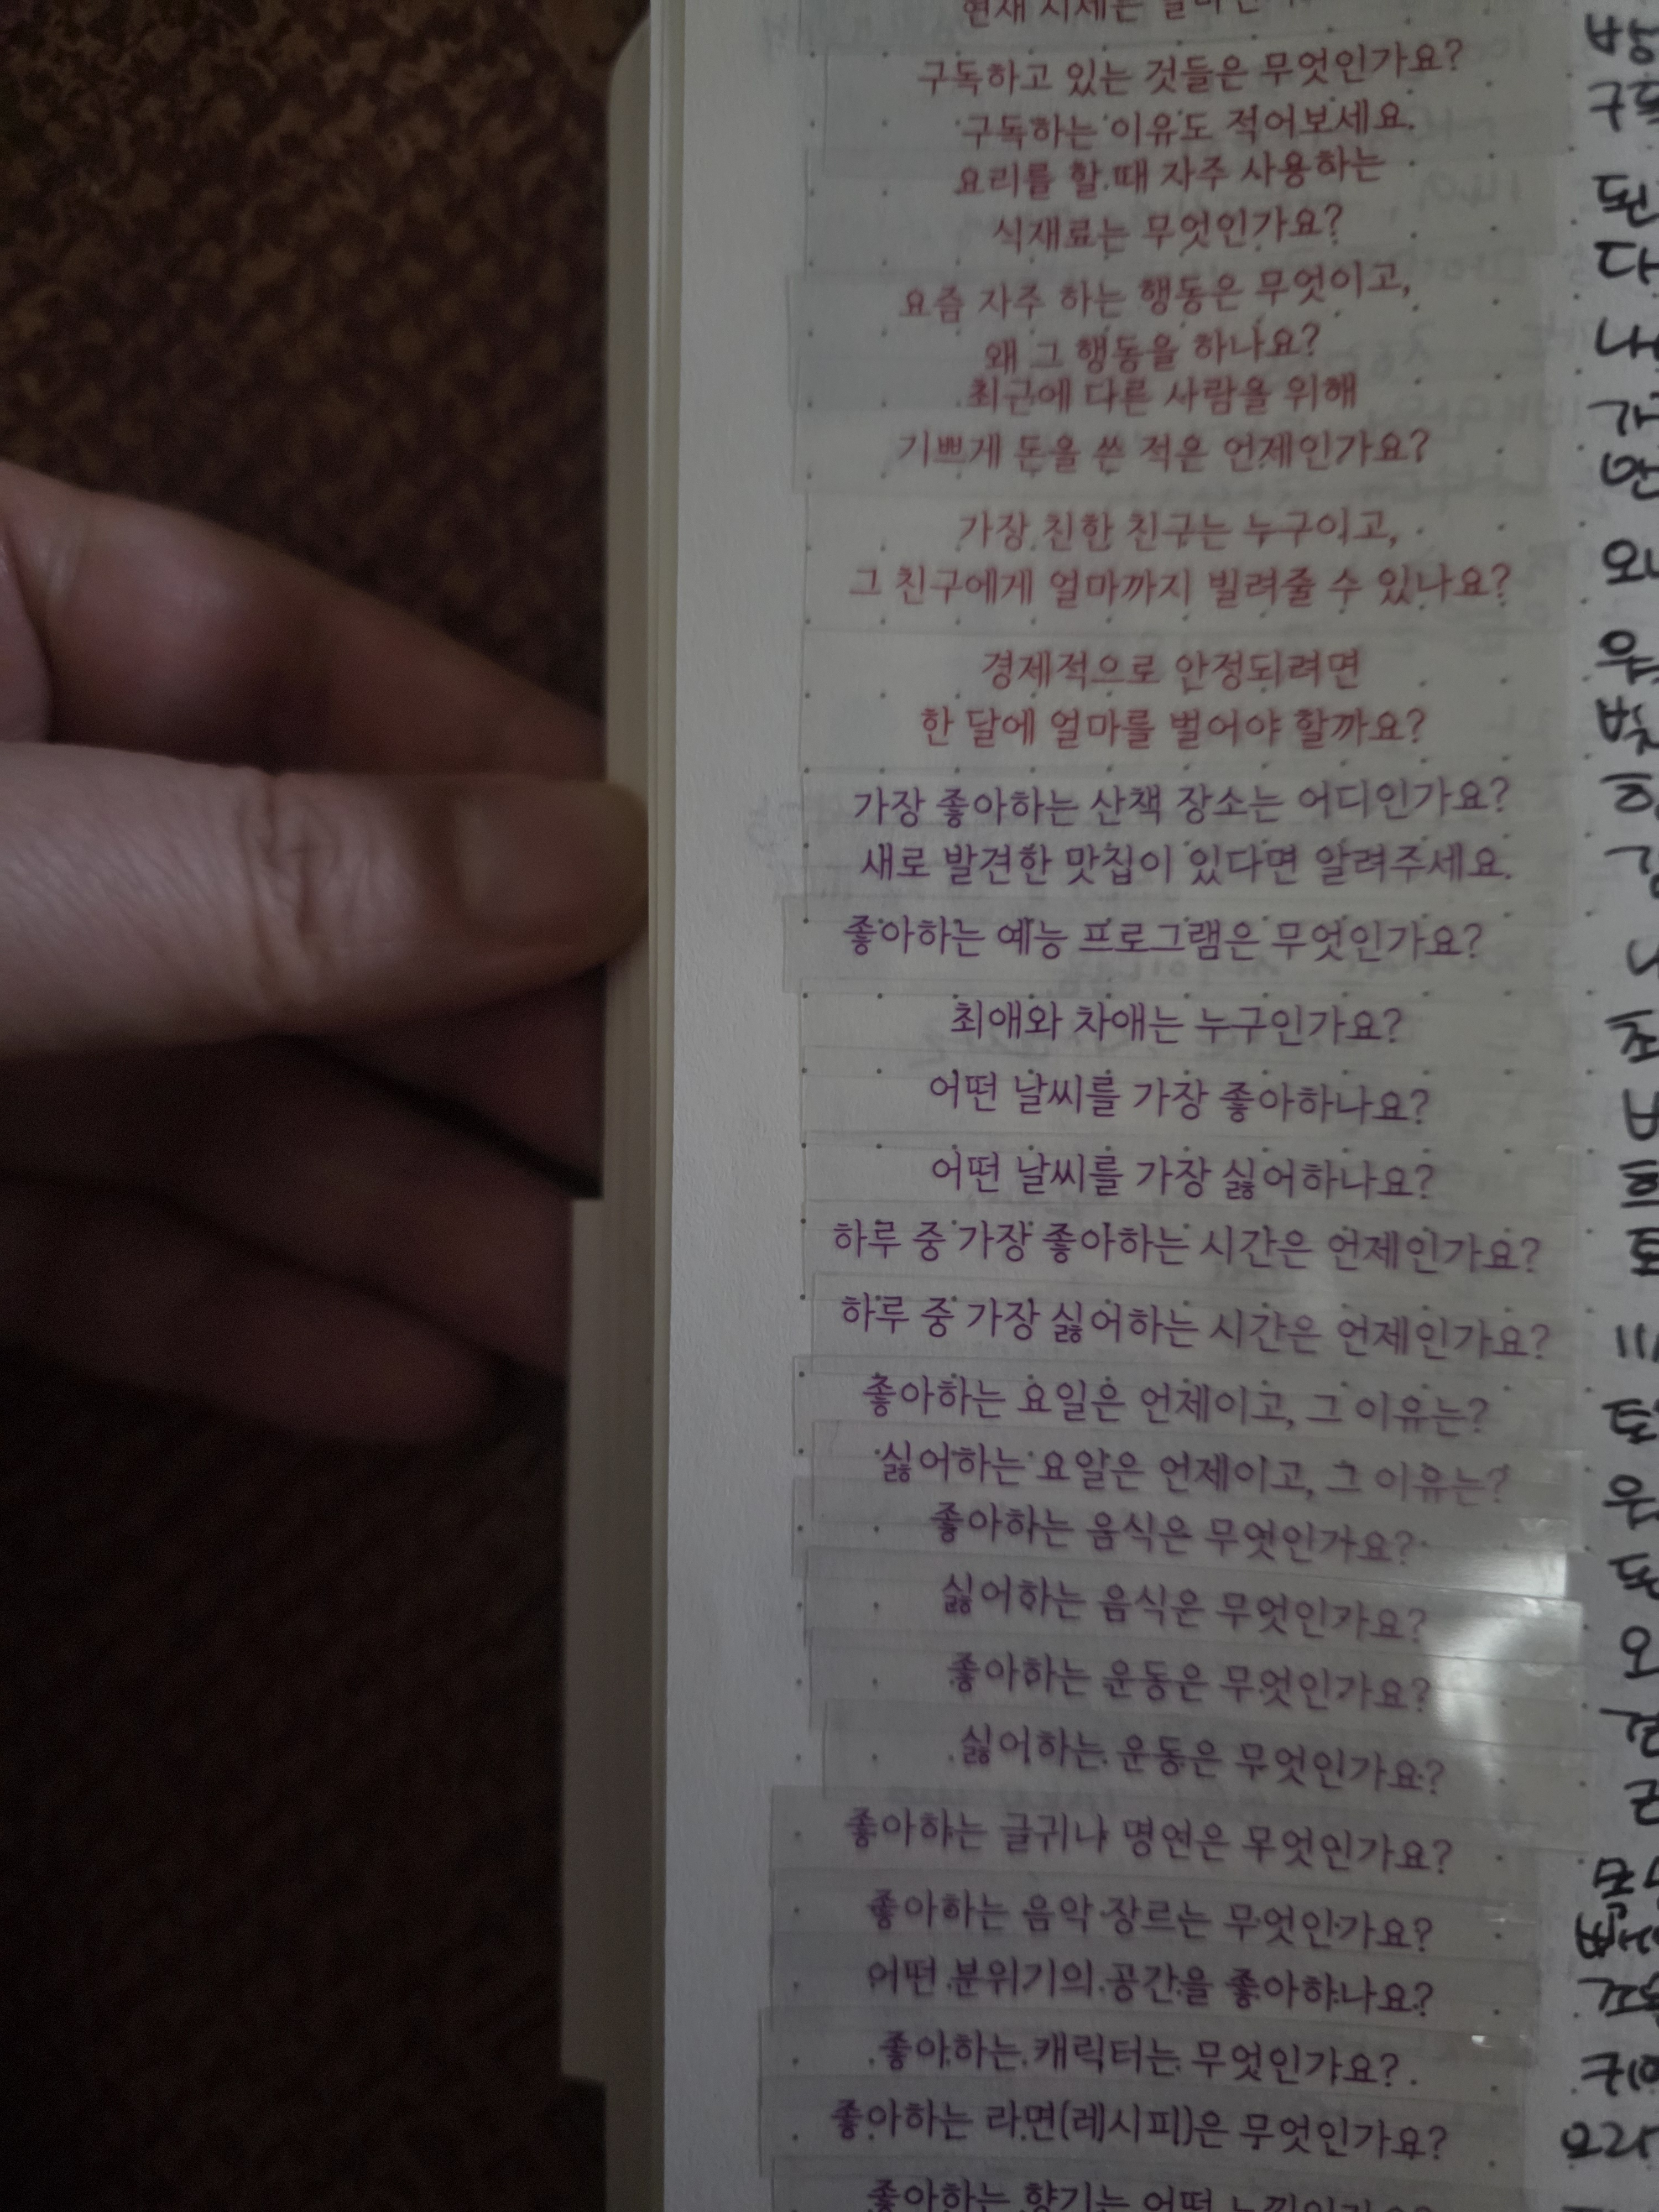 구독하고 있는 것들은 무엇인가요?
구독하는 이유도 적어보세요.
요리를 할 때 자주 사용하는
식재료는 무엇인가요?
요즘 자주 하는 행동은 무엇이고,
왜 그 행동을 하나요?
최근에 다른 사람을 위해
기쁘게 돈을 쓴 적은 언제인가요?
가장 친한 친구는 누구이고,
그 친구에게 얼마까지 빌려줄 수 있나요?
경제적으로 안정되려면
한 달에 얼마를 벌어야 할까요?
가장 좋아하는 산책 장소는 어디인가요?
새로 발견한 맛집이 있다면 알려주세요.
좋아하는 예능 프로그램은 무엇인가요?
최애와 차애는 누구인가요?
어떤 날씨를 가장 좋아하나요?
어떤 날씨를 가장 싫어하나요?
하루 중 가장 좋아하는 시간은 언제인가요?
하루 중 가장 싫어하는 시간은 언제인가요?
좋아하는 요일은 언제이고, 그 이유는?
싫어하는 요일은 언제이고, 그 이유는?
좋아하는 음식은 무엇인가요?
싫어하는 음식은 무엇인가요?
좋아하는 운동은 무엇인가요?
싫어하는 운동은 무엇인가요?
좋아하는 글귀나 명언은 무엇인가요?
좋아하는 음악 장르는 무엇인가요?
어떤 분위기의 공간을 좋아하나요?
좋아하는 캐릭터는 무엇인가요?
좋아하는 라면(레시피)은 무엇인가요?
좋아하는 향기는 어떤